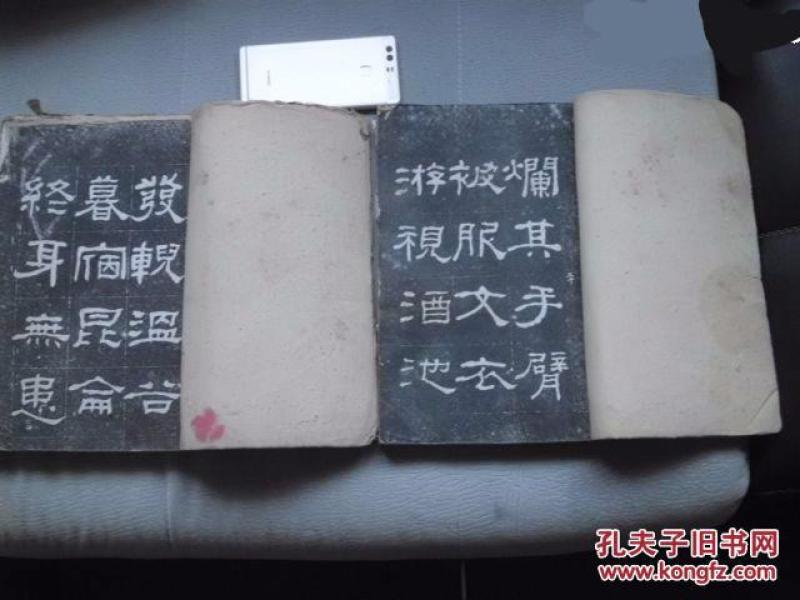 發輗溫谷
暮宿昆侖
終身無患
爛其手臂
被服文衣
游視酒池
孔夫子旧书网
www.kongfz.com